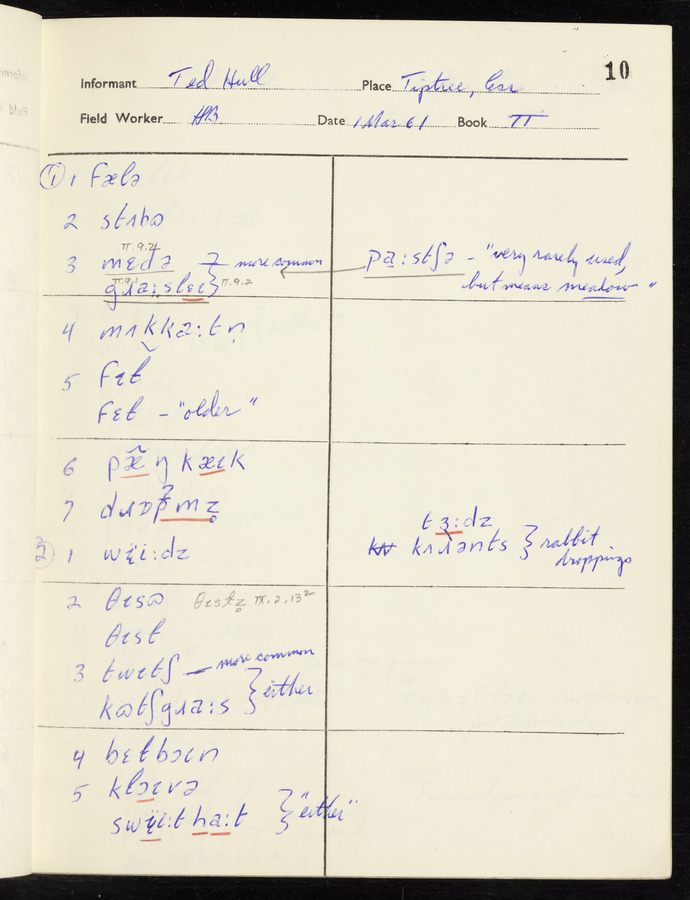 10
Informant Ted Hull Place Tiptree, Ess
Field Worker HB Date 1 Mar 61 Book II
① 1 fælə
2 stʌbɷ
II.9.2
3 mɛdə ə — more common
pa̤:stʃə – "very rarely used,
but means meadow"
II.9.1
gɹa:slɛɪ } II.9.2
4 mʌkka:tn̩
5 fɪt
fɛt – "older"
6 pæ̃ŋkæɪk
7 dɹɒʔmz̥
tɜ:dz
kɹɪənts } rabbit
droppings
② 1 wɪ̈i:dz
2 θɪsɷ θɪstz̥ II.2.13²
θɪst
3 twɪtʃ — more common
kɷtʃgɹa:s } either
4 bɛtbɔɪn
5 klɔɪvə
swɪ̈i:tha:t } "either"